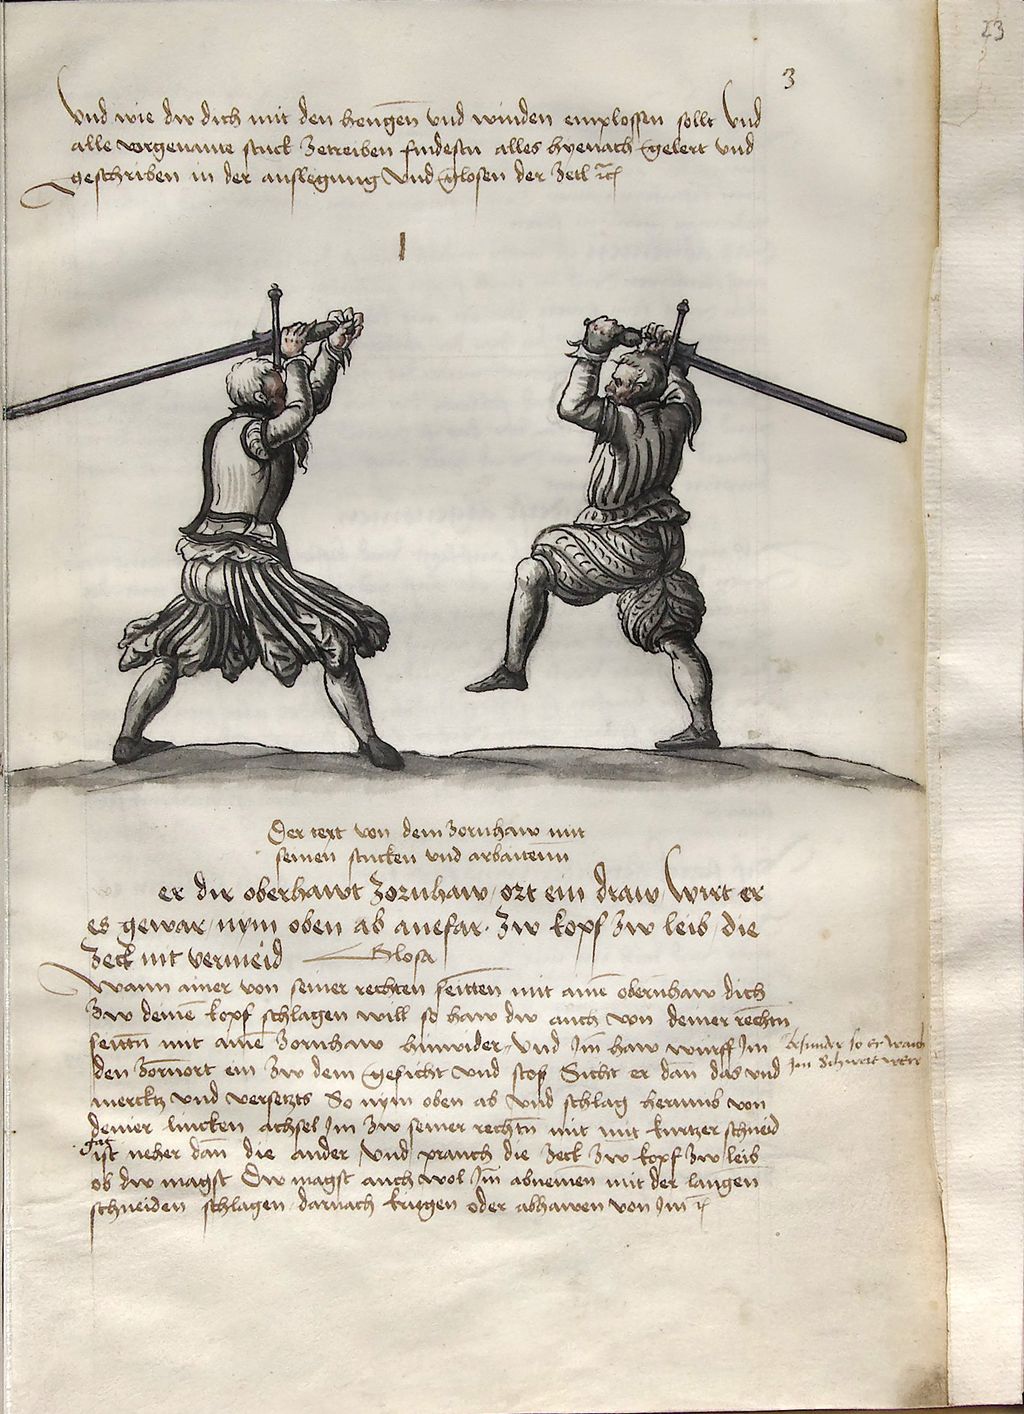 23
3
Vnd wie dw dich mit den hengen̄ vnd winden emplossen sollt Vnd
alle vorgenante stuck zetreiben findestu alles hyenach gelert vnd
geschriben in der auslegung vnd glosen der zetl
I
Der text von dem zornhaw mit
seinen stucken vnd arbaitenn
er dir oberhawt zornhaw / ort ein draw / Wirt er
es gewar / nym oben ab anefar · zw kopf zw leib / die
zeck nit vermeid Glosa
Wann ainer von seiner rechten seitten mit aine͞ obernhaw dich
zw deine͞ kopf schlagen will so haw dw auch von deiner rechtn̄
seittn̄ mit aine͞ zornhaw hinwider / vnd Im haw wurff Im
besunder so er waich Im Schwert were
den zornort ein zw dem gesicht vnd stoss Sicht er dan das vnd
mercktz vnd versetzts So nym oben ab vnd schlag herumb von
deiner lincken achsel Im zw seiner rechtn̄ mit mit kurtzer schneid
ist neher dan̄ die ander / vnd prauch die zeck zw kopf zw leib
ob dw magst Dw magst auch wol Im̄ abnemen̄ mit der langen̄
schneiden schlagen / darnach kriegen oder abhawen von Im̄